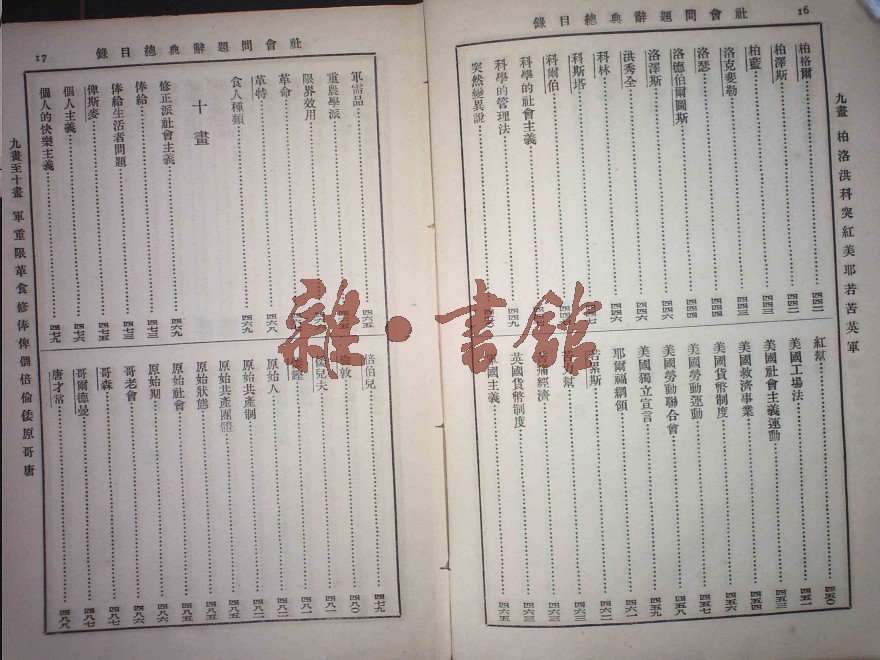 社會問題辭典總目錄
16
九畫 柏洛洪科突紅美耶若苦英軍
柏格爾 四四二
柏澤斯 四四二
柏藍 四四三
洛克斐勒 四四三
洛瑟 四四四
洛德伯爾圖斯 四四四
洛澤斯 四四六
洪秀全 四四六
科林
科斯塔
科爾伯
科學的社會主義
科學的管理法 四四九
突然變異說
紅幫 四五〇
美國工場法 四五一
美國社會主義運動 四五三
美國救濟事業 四五四
美國貨幣制度 四五六
美國勞動運動 四五七
美國勞動聯合會 四五八
美國獨立宣言 四五九
耶爾福綱領 四六一
若累斯 四六二
力幫 四六三
經濟 四六三
英國貨幣制度 四六三
國主義 四六五
社會問題辭典總目錄
17
軍需品 四六五
重農學派
限界效用
革命 四六八
革特
食人種類 四六九
十畫
修正派社會主義 四六九
俸給 四七三
俸給生活者問題 四七三
俾斯麥 四七五
個人主義 四七六
個人的快樂主義 四七九
倍伯兒 四七九
倫敦 四八〇
倭兒夫 四八一
四八一
原始人 四八二
原始共產制 四八二
原始共產團體 四八四
原始狀態 四八五
原始社會 四八五
原始期 四八六
哥老會 四八六
哥森 四八七
哥爾德曼 四八七
唐才常 四八八
九畫至十畫 軍重限革食修俸俾個倍倫倭原哥唐
雜·書館